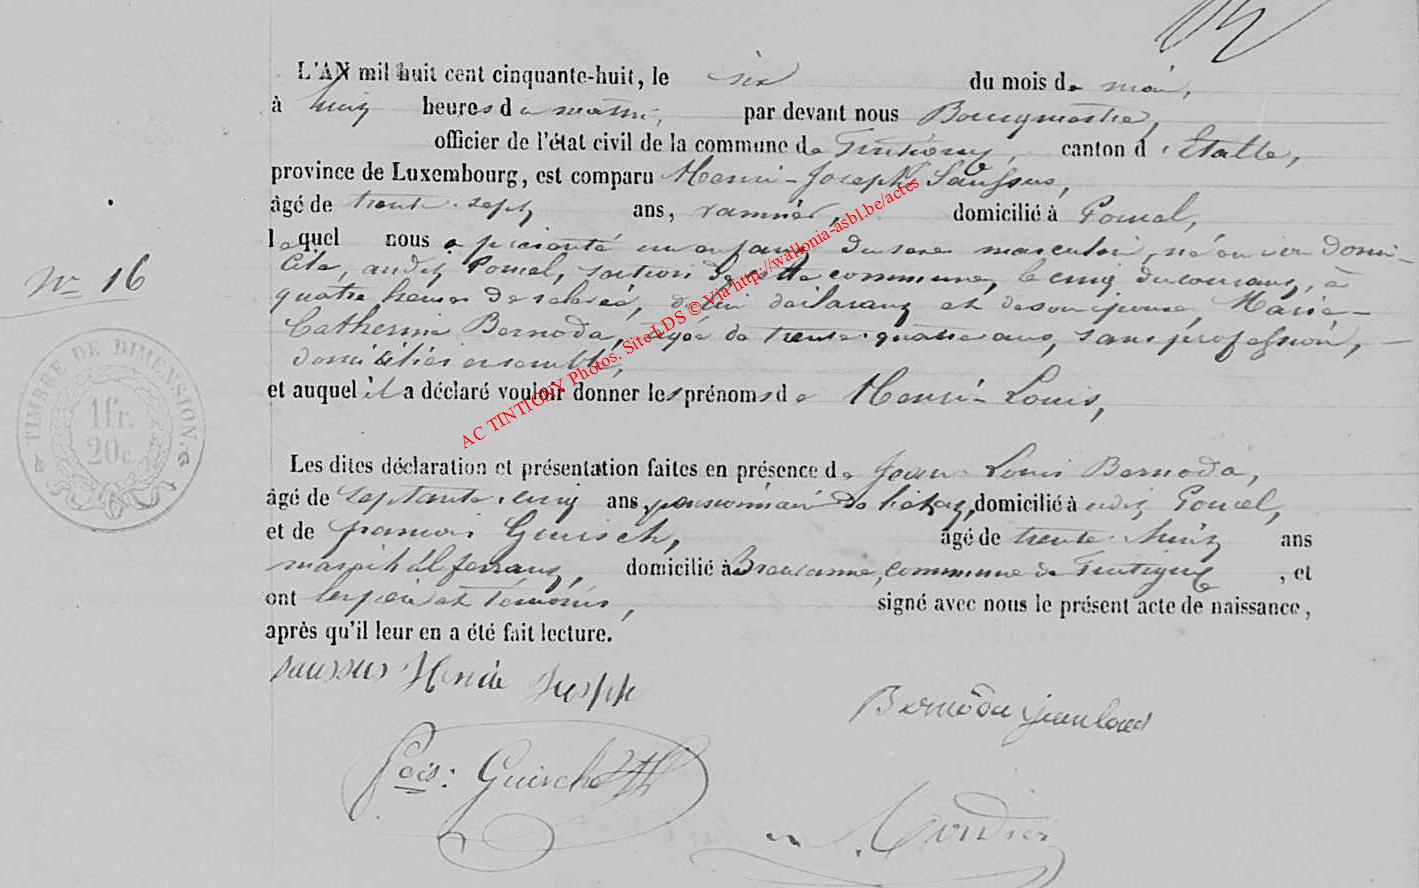 L'AN mil huit cent cinquante-huit, le six du mois de mai,
à huit heures du matin, par devant nous Bourgmestre,
officier de l'état civil de la commune de Tintigny, canton d'Etalle,
province de Luxembourg, est comparu Henri-Joseph Saussus,
âgé de trente-sept ans, vannier, domicilié à Poncel,
lequel nous a présenté un enfant du sexe masculin, né en son domi-
cile, audit Poncel, section de cette commune, le cinq du courant, à
quatre heures de relevée, de lui déclarant et de son épouse, Marie-
N° 16
Catherine Bernoda, âgée de trente-quatre ans, sans profession,
domiciliés ensemble,
et auquel il a déclaré vouloir donner les prénoms de Henri-Louis,
TIMBRE DE DIMENSION.
1 fr.
20 c.
Les dites déclaration et présentation faites en présence de Jean Louis Bernoda,
âgé de septante-cinq ans, pensionnaire de l'état, domicilié à udit Poncel,
et de françois Guirsch, âgé de trente-huit ans
maréchal ferrant, domicilié à Breuvanne, commune de Tintigny, et
ont les père et témoins, signé avec nous le présent acte de naissance,
après qu'il leur en a été fait lecture.
saussus Henrie Juspp
Bernoda jean louis
fcois: Guirsch
AC TINTIGNY Photos. Site LDS © Via http://wallonia-asbl.be/actes